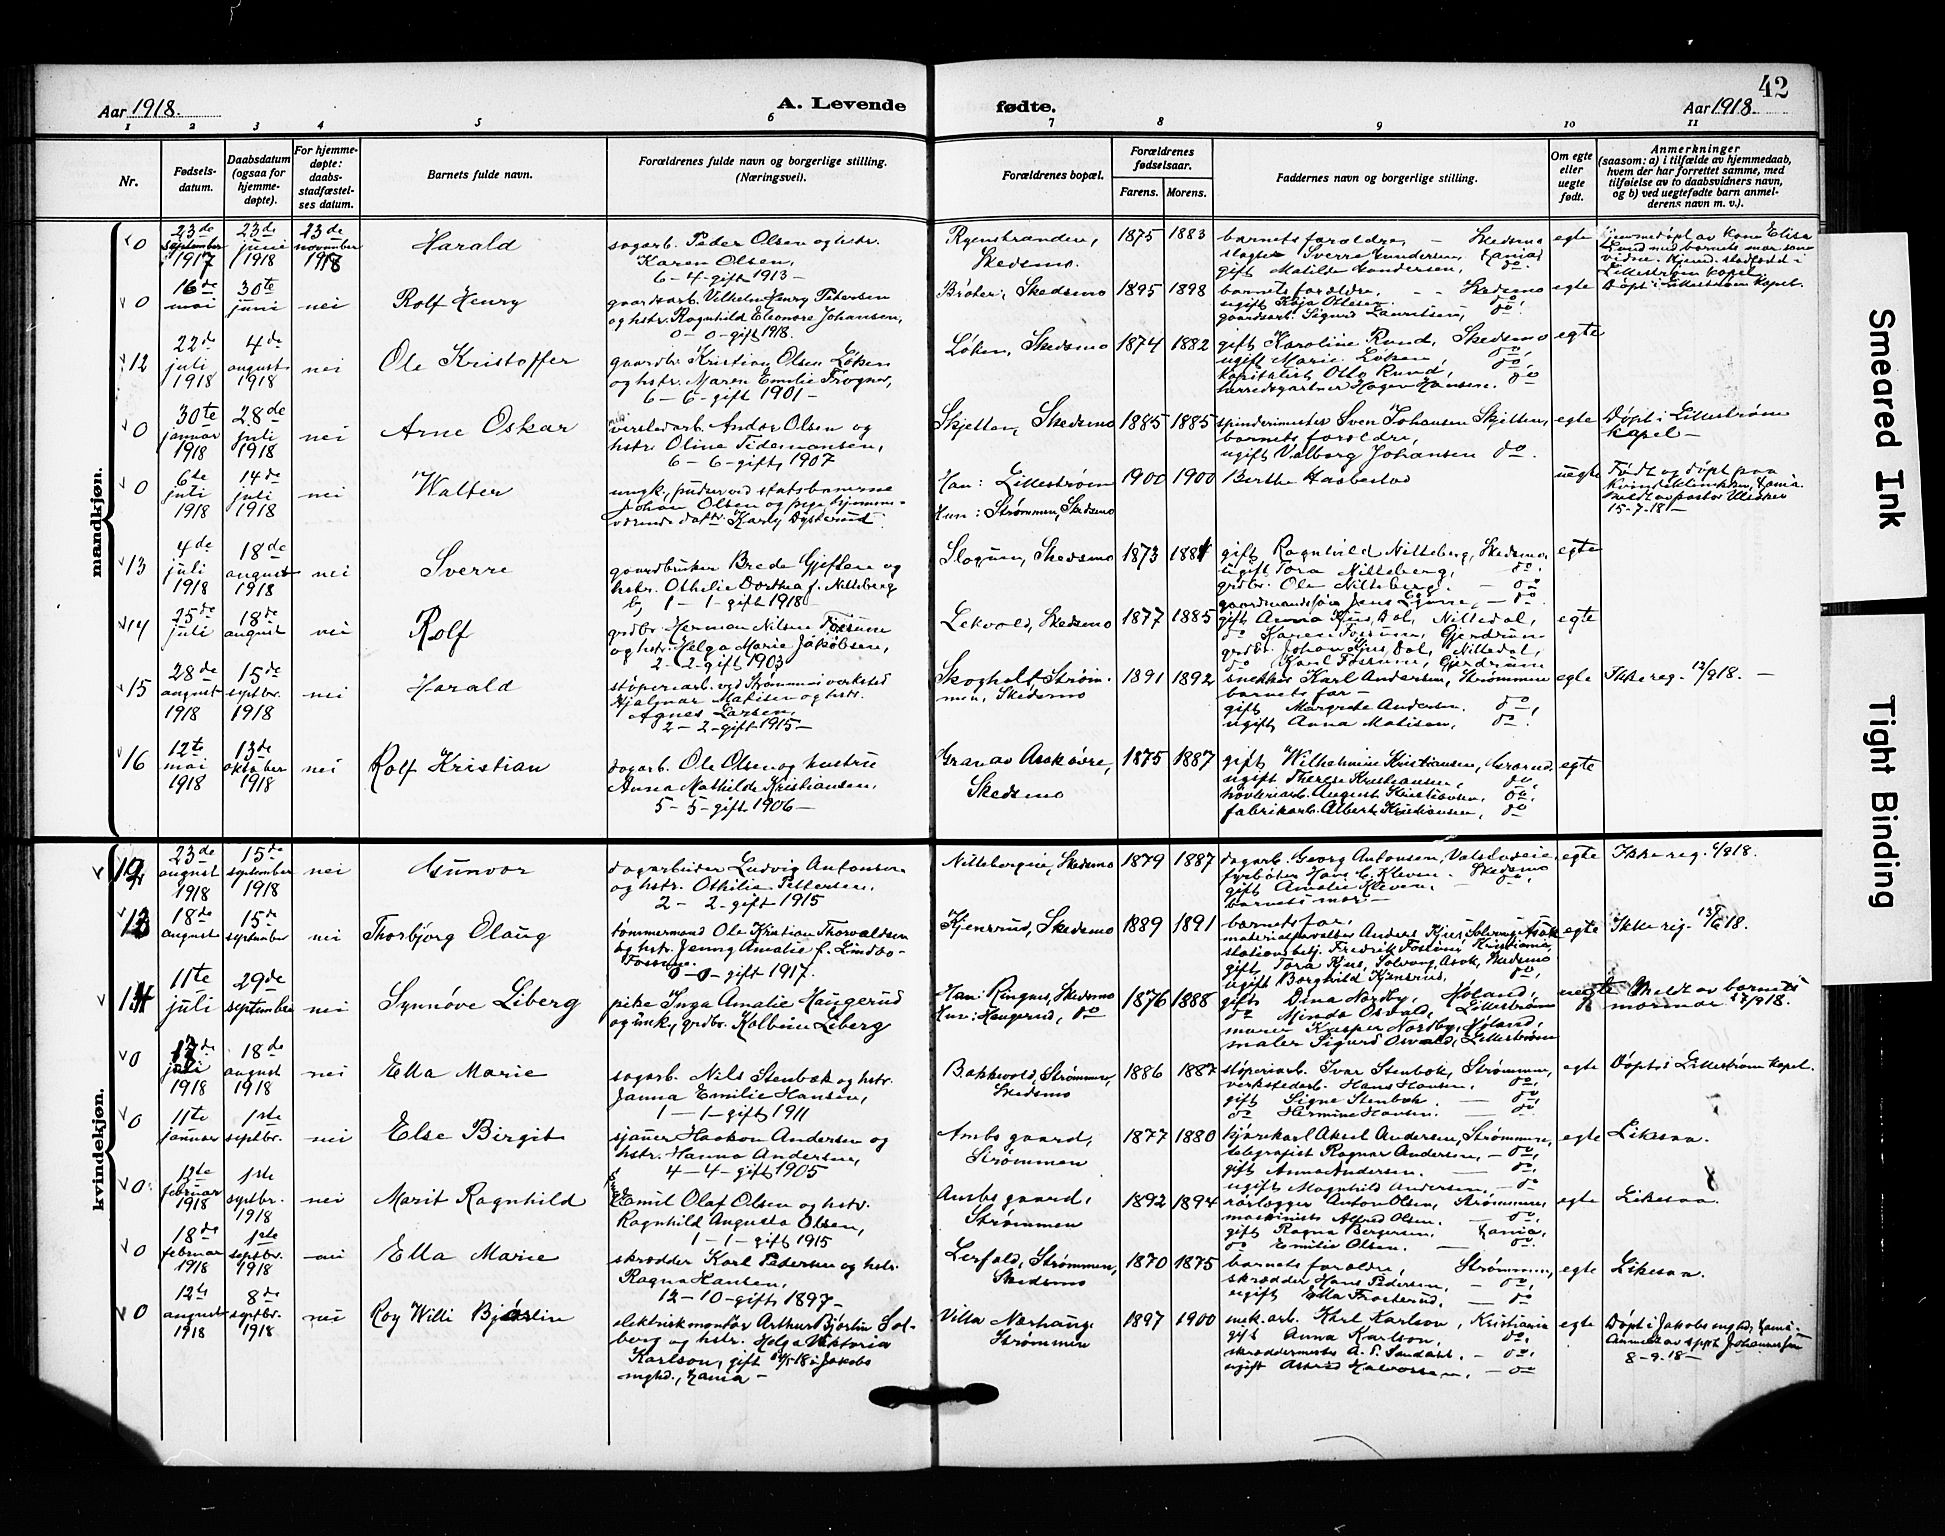 42
Aar 1918.
A. Levende fødte.
Aar 1918.
1 2 3 4 5 6 7 8 9 10 11
Nr.
Fødsels-
datum.
Daabsdatum
(ogsaa for
hjemme-
døpte).
For hjemme-
døpte:
daabs-
stadfæstel-
ses datum.
Barnets fulde navn.
Forældrenes fulde navn og borgerlige stilling.
(Næringsvei).
Forældrenes bopæl.
Forældrenes
fødselsaar.
Farens. Morens.
Faddernes navn og borgerlige stilling.
Om egte
eller
uegte
født.
Anmerkninger
(saasom: a) i tilfælde av hjemmedaab,
hvem der har forrettet samme, med
tilføielse av to daabsvidners navn,
og b) ved uegtefødte barn anmel-
derens navn m. v.).
mandkjøn.
0
23de september 1917
23de juni 1918
23de november 1918
Harald
sagarb. Peder Olsen og hstr.
Karen Olsen,
6 - 4 - gift 1913 -
Ryenstranden,
Skedsmo.
1875 1883
barnets forældre, - Skedsmo
gift Matilde Gundersen, do.
egte
Hjemmedøpt av kone Elise
Lund med barnets mor som
Lillestrøm kapel.
0
16de mai
30te juni
nei
Rolf Henry
gaardsarb. Vilhelm Henry Petersen
og hstr. Ragnhild Eleonore Johansen,
0 - 0 - gift 1918.
Bråter, Skedsmo
1895 1898
barnets forældre, - - Skedsmo
ugift Kaja Ottesen. do
gaardsarb. Sigurd Lauritsen, do.
egte
Døpt i Lillestrøm kapel.
12
22de juli 1918
4de august 1918
nei
Ole Kristoffer
gaardbr. Kristian Olsen Løken
og hstr. Maren Emilie Trogner,
6 - 6 - gift 1901 -
Løken, Skedsmo
1874 1882
gift Karoline Rund, Skedsmo
ugift Marie Løken, do,
kapitalist Otto Rund, do,
herredsgartner Hagen Hansen. do
egte
0
30te januar 1918
28de juli 1918
nei
Arne Oskar
verkstedarb. Andor Olsen og
hstr. Oline Tidemansen,
6 - 6 - gift 1907
Skjetten, Skedsmo
1885 1885
spinderimester Sven Johansen Skjetten,
barnets forældre,
ugift Valborg Johansen do.
egte
Døpt i Lillestrøm
kapel -
0
6te juli 1918
14de juli 1918
nei
Walter
ungk., pudser ved statsbanerne
Johan Olsen og pige hjemme-
værende datter Karly Dysterud.
Han: Lillestrøm
Hun: Strømmen, Skedsmo
1900 1900
Berthe Haabestad
uegte
Født og døpt paa
kvindeklinikken, Xania.
15-7-18 -
13
4de juli 1918
18de august 1918
nei
Sverre
gaardbruker Brede Gjeflen og
hstr. Othelie Dorthea f. Nitteberg
1 - 1 - gift 1918 -
Slogum, Skedsmo
1873 1881
gift Ragnhild Nitteberg, Skedsmo,
ugift Tora Nitteberg, do,
grdbr. Ole Nitteberg. - do
egte
14
25de juli
18de august
nei
Rolf
grdbr. Herman Nilsen Fossum
og hstr. Helga Marie Jakobsen,
2 - 2 - gift 1903
Lekvold, Skedsmo
1877 1885
gift Anna Kjus, Dal, Nittedal,
do Karen Fossum, Gjerdrum
grdbr. Johan Kjus, Dal, Nittedal,
do Karl Fossum, Gjerdrum
egte
15
28de august 1918
15de septbr. 1918
nei
Harald
støperiarb. ved Strømmen verksted
Hjalmar Matisen og hstr.
Agnes Larsen,
2 - 2 - gift 1915 -
Skogholt, Strøm-
men, Skedsmo
1891 1892
snekker Karl Andersen, Strømmen
barnets far -
gift Margrete Andersen. do,
ugift Anna Matisen, do.
egte
Ikke reg. 12/9 18. -
16
12te mai 1918
13de oktober 1918
nei
Rolf Kristian
dagarb. Ole Olsen og hustru
Anna Mathilde Kristiansen,
5 - 5 - gift 1906 -
Grav av Asakøvre,
Skedsmo
1875 1887
gift Wilhelmine Kristiansen, Grorud,
ugift Therese Kristiansen, do,
høvleriarb. August Kristiansen, do.
fabrikarb. Albert Kristiansen, do
egte
kvindekjøn.
12
23de august 1918
15de september 1918
nei
Gunvor
dagarbeider Ludvig Antonsen
og hstr. Othilie Pettersen.
2 - 2 - gift 1915
Nittebergeie, Skedsmo
1879 1887
dagarb. Georg Antonsen, Valstadeie,
fyrbøter Hans C. Kleven. Skedsmo
gift Amalie Kleven. - do,
barnets mor -
egte
Ikke reg.
13
18de august
15de september
nei
Thorbjørg Olaug
tømmermand Ole Kristian Thorvaldsen
og hstr. Jenny Amalie f. Lindbo-
Fossum.
0 - 0 - gift 1917.
Kjensrud, Skedsmo
1889 1891
barnets far,
materialforvalter Anders Kjus, Solvang, Asak
gift Tora Kjus, Solvang, Asak, Skedsmo
ugift Borghild Kjensrud, do,
egte
Ikke reg.
14
11te juli
29de september
nei
Synnøve Liberg
pike Inga Amalie Haugerud
og unk., grdbr. Kolbein Liberg
Han: Ringnes, Skedsmo
Hun: Haugerud, do
1876 1888
gift Dina Nordby, Høland,
do Minda Osvald, Lillestrøm
murer Kasper Nordby, Høland,
maler Sigurd Osvald, Lillestrøm
uegte
Meldt av barnets
mormor 17/9 18.
0
17de juli 1918
18de august 1918
nei
Ella Marie
sagarb. Nils Stenbæk og hstr.
Janna Emilie Hansen,
1 - 1 - gift 1911
Bakkevold, Strømmen,
Skedsmo
1886 1887
støperiarb. Ivar Stenbæk, Strømmen,
verkstedarb. Hans Hansen. do,
gift Signe Stenbæk. - do,
do Hermine Hansen. - do
egte
Døpt i Lillestrøm kapel.
0
11te januar
1ste septbr.
nei
Else Birgit
sjauer Haakon Andersen og
hstr. Hanna Andersen,
4 - 4 - gift 1905
Ambs gaard,
Strømmen
1877 1880
kjørekarl Aksel Andersen, Strømmen,
telegrafist Ragnar Andersen, - do,
gift Anna Andersen. - do.
ugift Magnhild Andersen. - do
egte
Likesaa.
0
12te februar 1918
1ste septbr. 1918
nei
Marit Ragnhild
Emil Olaf Olsen og hstr.
Ragnhild Augusta Olsen,
1 - 1 - gift 1915
Ambs gaard,
Strømmen
1892 1894
rørlægger Anton Olsen, Strømmen,
maskinist Alfred Olsen. - do,
gift Ragna Bergersen, Xania,
do Emilie Olsen. - do.
egte
Likesaa
0
18de februar 1918
1ste septbr. 1918
nei
Ella Marie
skrædder Karl Pedersen og hstr.
Ragna Hansen,
12 - 10 - gift 1897 -
Lerfald, Strømmen,
Skedsmo
1870 1875
barnets forældre, Strømmen,
skrædder Hans Pedersen, - do,
ugift Ella Frosterud, - do
egte
Likesaa.
0
12te august 1918
8de septbr. 1918
nei
Roy Willi Bjørlin
elektriskmontør Arthur Bjørlin Sol-
berg og hstr. Helga Viktoria
Karlson, gift 18 i Jakobs
mghd., Xania -
Villa Nørhaug
Strømmen
1897 1900
mek. arb. Karl Karlson, Kristiania
gift Anna Karlson, do,
skræddermester A. P. Sundahl. - do,
ugift Astrid Halvorsen, - do
egte
Døpt i Jakobs mghd, Xania.
8-9-18 -
Smeared Ink
Tight Binding